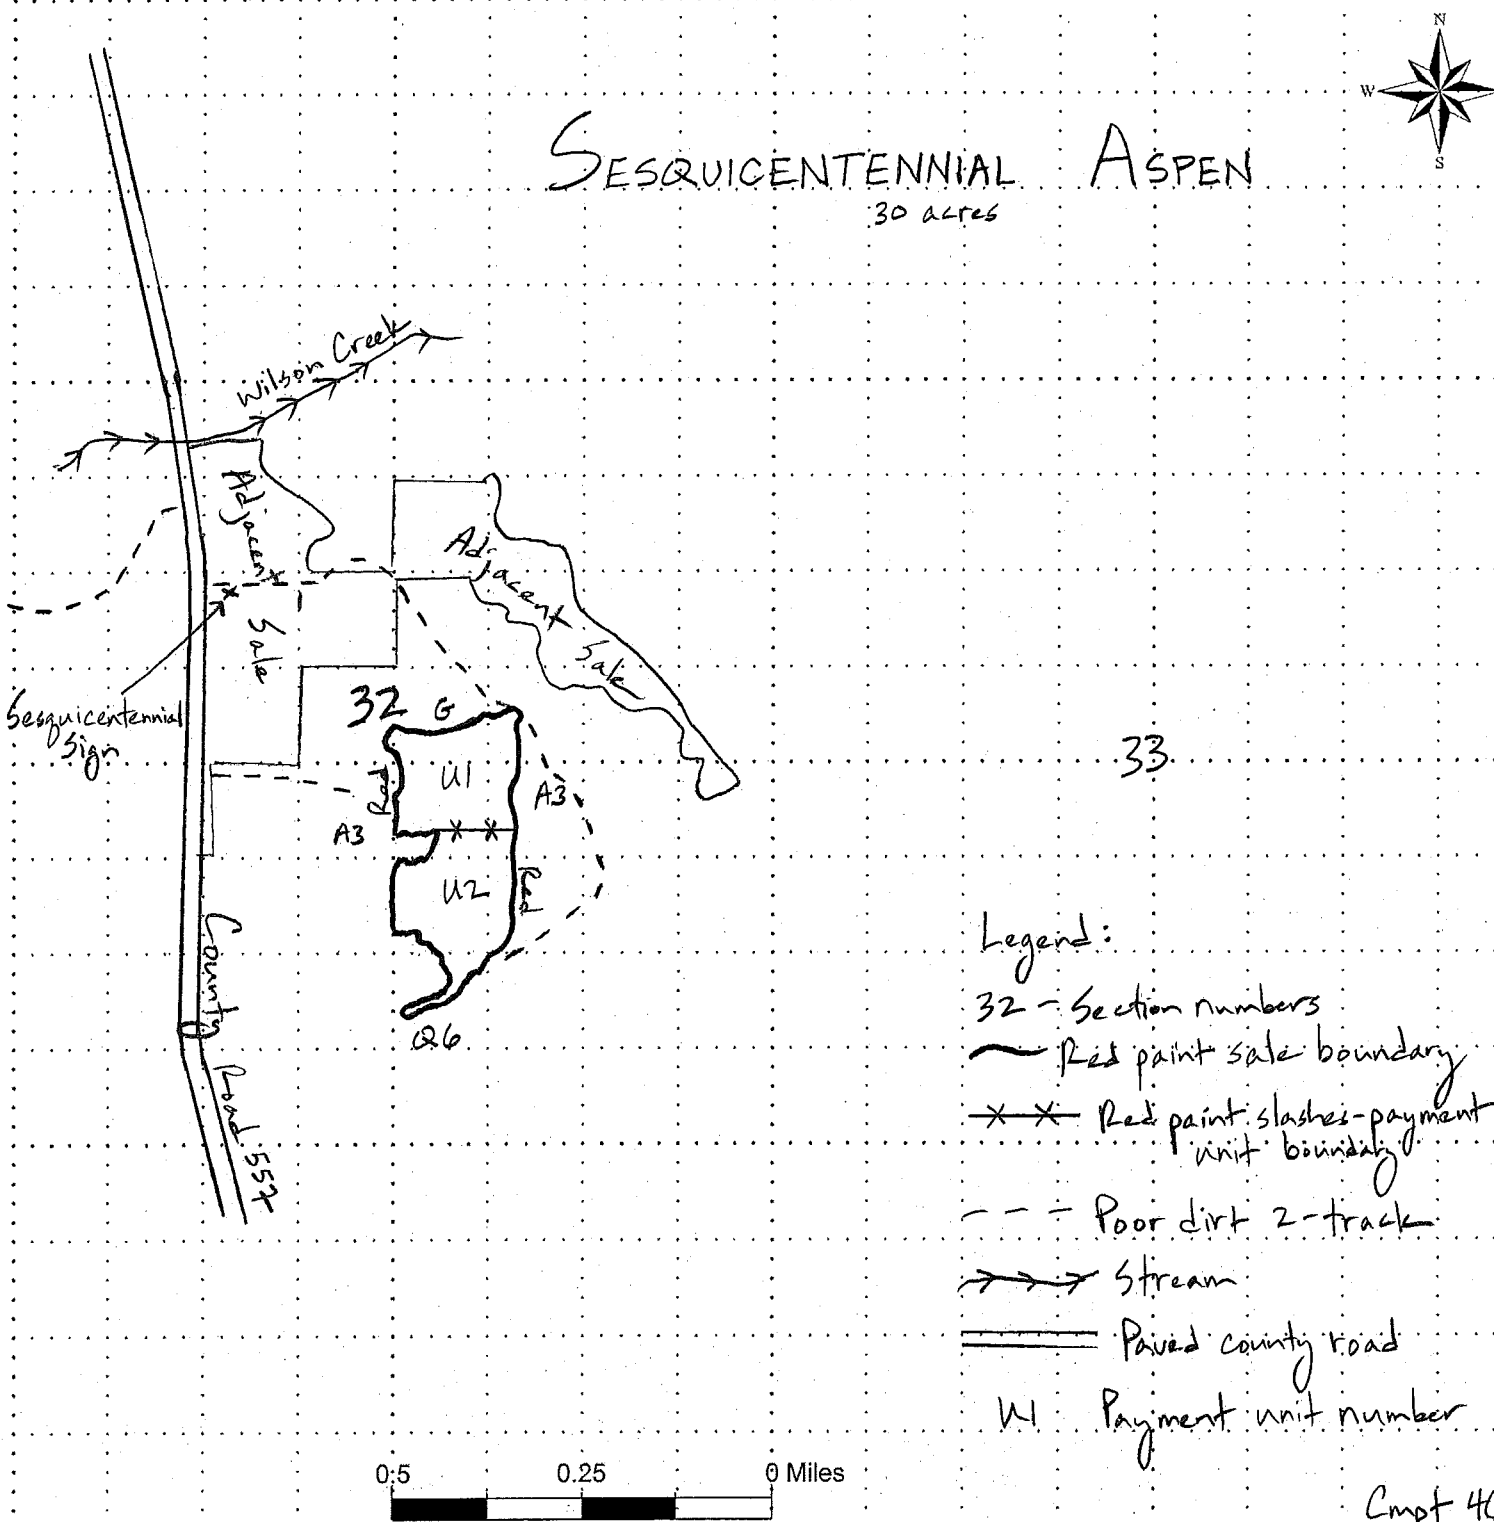 N
W
S
SESQUICENTENNIAL ASPEN
30 acres
Wilson Creek
Adjacent
Sale
Adjacent
Sale
Sesquicentennial
Sign
32
G
U1
Red
A3
A3
U2
Red
Q6
33
County Road 557
Legend:
32 - Section numbers
Red paint sale boundary
Red paint slashes-payment
unit boundary
Poor dirt 2-track
Stream
Paved county road
U1 Payment unit number
0.5 0.25 0 Miles
Cmpt